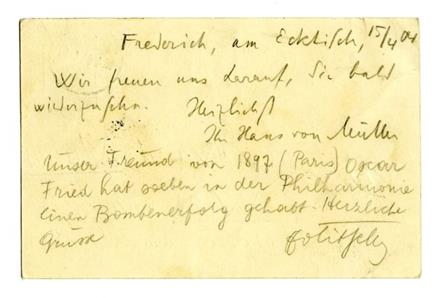 Frederich, am Ecktisch, 15/4 04
Wir freuen uns darauf, Sie bald
wiederzusehn. Herzlichst
Ihr Hans von Müller
Unser Freund von 1897 (Paris) Oscar
Fried hat soeben in der Philharmonie
einen Bombenerfolg gehabt. Herzliche
Grüsse